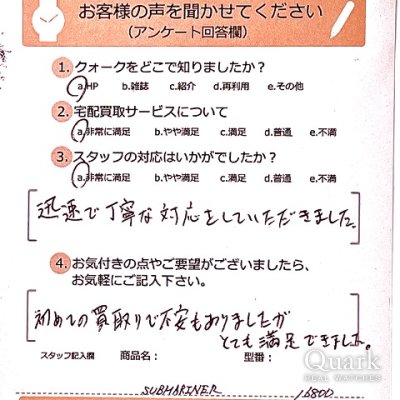 お客様の声を聞かせてください
(アンケート回答欄)
1. クォークをどこで知りましたか?
a.HP b.雑誌 c.紹介 d.再利用 e.その他
2. 宅配買取サービスについて
a.非常に満足 b.やや満足 c.満足 d.普通 e.不満
3. スタッフの対応はいかがでしたか?
a.非常に満足 b.やや満足 c.満足 d.普通 e.不満
迅速で丁寧な対応をしていただきました。
4. お気付きの点やご要望がございましたら、
お気軽にご記入下さい。
初めての買取りで不安もありましたが
とても満足できました。
スタッフ記入欄 商品名: 型番:
SUBMARINER 16800
Quark
REAL WATCHES